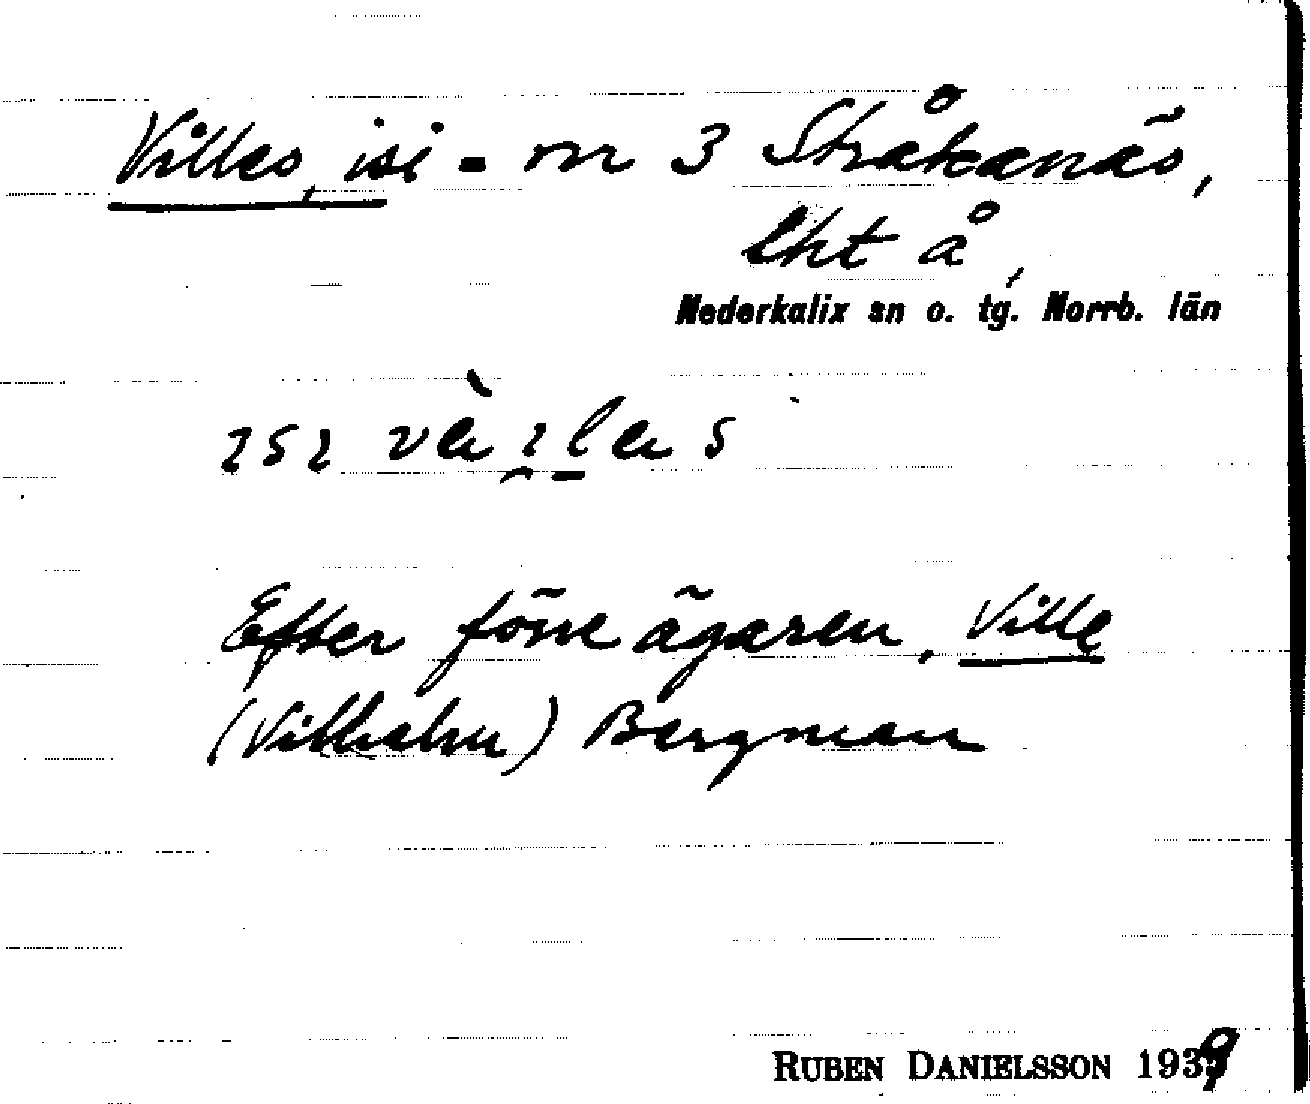 Villes, isi = nr 3 Stråkanäs,
lht å,
Nederkalix sn o. tg. Norrb. län
Efter förre ägaren, Ville
(Vilhelm) Bergman
RUBEN DANIELSSON 1939